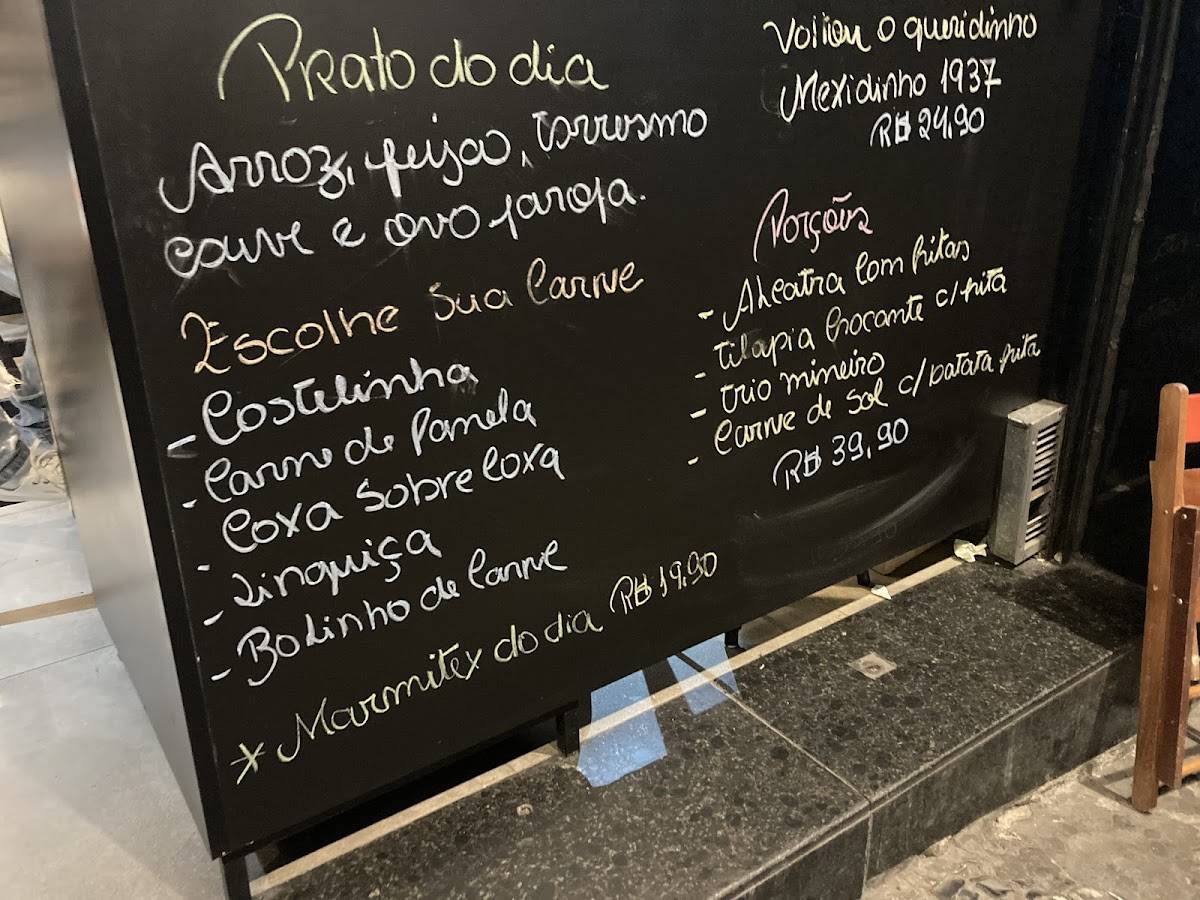 Prato do dia
Arroz, feijao, torresmo
couve e ovo farofa.
Escolhe sua Carne
- Costelinha
- Carne de Panela
- Coxa Sobre Coxa
- Linguiça
- Bolinho de Carne
* Marmitex do dia R$ 19,90
Voltou o queridinho
Mexidinho 1937
R$ 24,90
Porções
- Alcatra Com fritas
- tilapia Crocante c/ frita
- trio mineiro
- Carne de Sol c/ batata frita
R$ 39,90